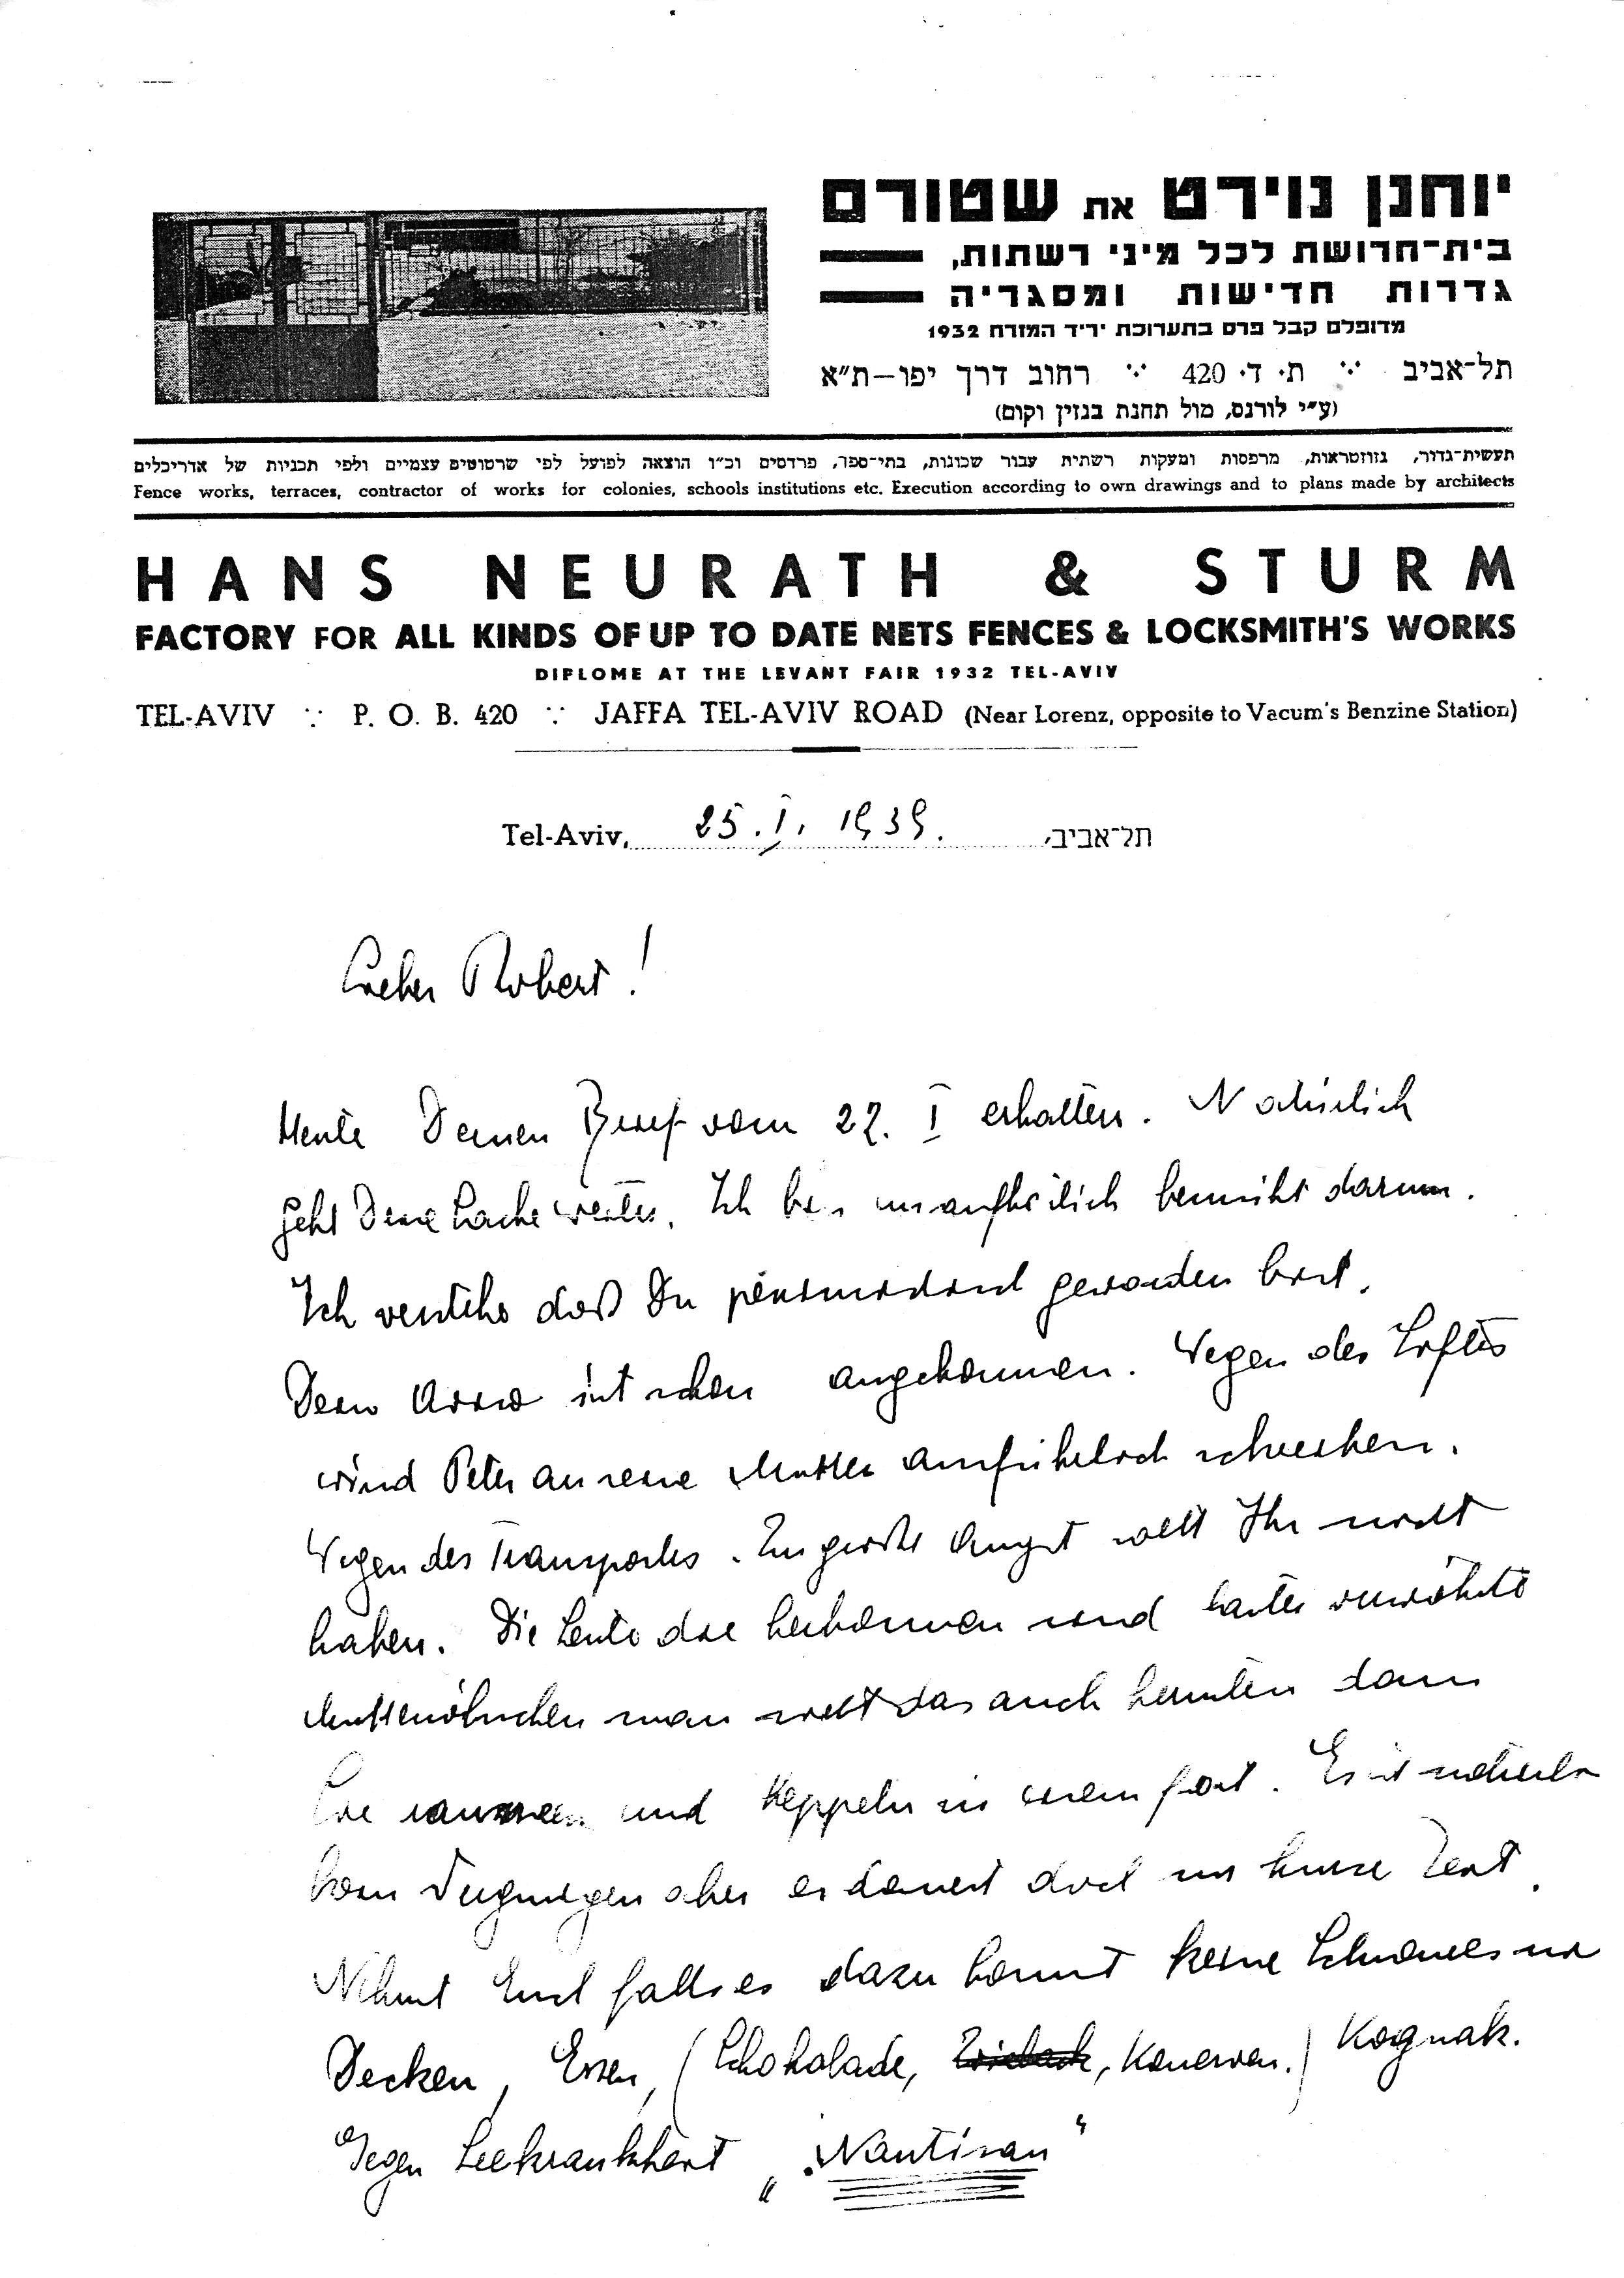 יוחנן נוירט את שטורם
בית־חרושת לכל מיני רשתות,
גדרות חדישות ומסגריה
מדופלם קבל פרס בתערוכת יריד המזרח 1932
תל־אביב ∵ ת. ד. 420 ∵ רחוב דרך יפו–ת״א
(ע״י לורנס, מול תחנת בנזין וקום)
תעשית־גדור, גזוזטראות, מרפסות ומעקות רשתית עבור שכונות, בתי־ספר, פרדסים וכ״ו הוצאה לפועל לפי שרטוטים עצמיים ולפי תכניות של אדריכלים
Fence works, terraces, contractor of works for colonies, schools institutions etc. Execution according to own drawings and to plans made by architects
HANS NEURATH & STURM
FACTORY FOR ALL KINDS OF UP TO DATE NETS FENCES & LOCKSMITH'S WORKS
DIPLOME AT THE LEVANT FAIR 1932 TEL-AVIV
TEL-AVIV ∵ P. O. B. 420 ∵ JAFFA TEL-AVIV ROAD (Near Lorenz, opposite to Vacum's Benzine Station)
Tel-Aviv, 25. I. 1939. תל־אביב,
Lieber Robert!
Heute Deinen Brief vom 22. I erhalten. Natürlich
geht Deine Sache weiter. Ich bin unaufhörlich bemüht darum.
Ich verstehe daß Du pessimistisch geworden bist.
Dein ist schon angekommen. Wegen des Liftes
wird Peter an seine Mutter ausführlich schreiben.
Wegen des Transportes. Zu große Angst sollt Ihr nicht
haben. Die Leute die herkommen sind lauter verwöhnte
Muttersöhnchen man sieht das auch herunten dann
Sie raunzen und keppeln in einem fort. Es ist natürlich
kein Vergnügen aber es dauert doch nur kurze Zeit.
Nehmt Euch falls es dazu kommt keine nur
Decken, Essen, (Schokolade, Zwieback, Konserven.) Kognak.
Gegen Seekrankheit „Nautisan“